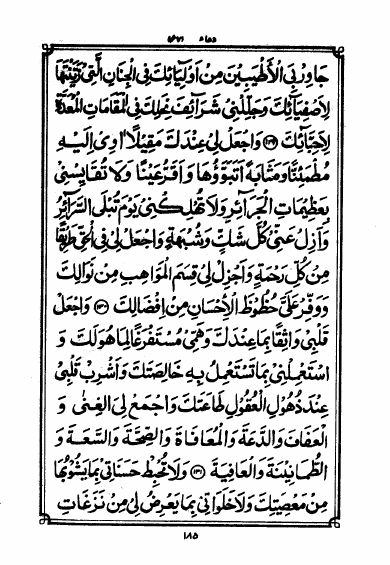 دعاء ۴۷
جَاوِرْ بِيَ الْأَطْيَبِينَ مِنْ أَوْلِيَائِكَ فِي الْجِنَانِ الَّتِي زَيَّنْتَهَا
لِأَصْفِيَائِكَ وَجَلِّلْنِي شَرَائِفَ نِحَلِكَ فِي الْمَقَامَاتِ الْمُعَدَّةِ
لِأَحِبَّائِكَ ﴿۱۲۹﴾ وَاجْعَلْ لِي عِنْدَكَ مَقِيلًا اٰوِي إِلَيْهِ
مُطْمَئِنًّا وَمَثَابَةً أَتَبَوَّؤُهَا وَأَقَرُّ عَيْنًا وَلَا تُقَايِسْنِي
بِعَظِيمَاتِ الْجَرَائِرِ وَلَا تُهْلِكْنِي يَوْمَ تُبْلَى السَّرَائِرُ
وَأَزِلْ عَنِّي كُلَّ شَكٍّ وَشُبْهَةٍ وَاجْعَلْ لِي فِي الْحَقِّ طَرِيقًا
مِنْ كُلِّ رَحْمَةٍ وَأَجْزِلْ لِي قِسَمَ الْمَوَاهِبِ مِنْ نَوَالِكَ
وَوَفِّرْ عَلَيَّ حُظُوظَ الْإِحْسَانِ مِنْ إِفْضَالِكَ ﴿۱۳۰﴾ وَاجْعَلْ
قَلْبِي وَاثِقًا بِمَا عِنْدَكَ وَهَمِّي مُسْتَفْرَغًا لِمَا هُوَ لَكَ وَ
اسْتَعْمِلْنِي بِمَا تَسْتَعْمِلُ بِهِ خَالِصَتَكَ وَأَشْرِبْ قَلْبِي
عِنْدَ ذُهُولِ الْعُقُولِ طَاعَتَكَ وَاجْمَعْ لِيَ الْغِنٰى وَ
الْعَفَافَ وَالدَّعَةَ وَالْمُعَافَاةَ وَالصِّحَّةَ وَالسَّعَةَ وَ
الطُّمَانِينَةَ وَالْعَافِيَةَ ﴿۱۳۱﴾ وَلَا تُحْبِطْ حَسَنَاتِي بِمَا يَشُوبُهَا
مِنْ مَعْصِيَتِكَ وَلَا خَلَوَاتِي بِمَا يَعْرِضُ لِي مِنْ نَزَغَاتِ
۱۸۵